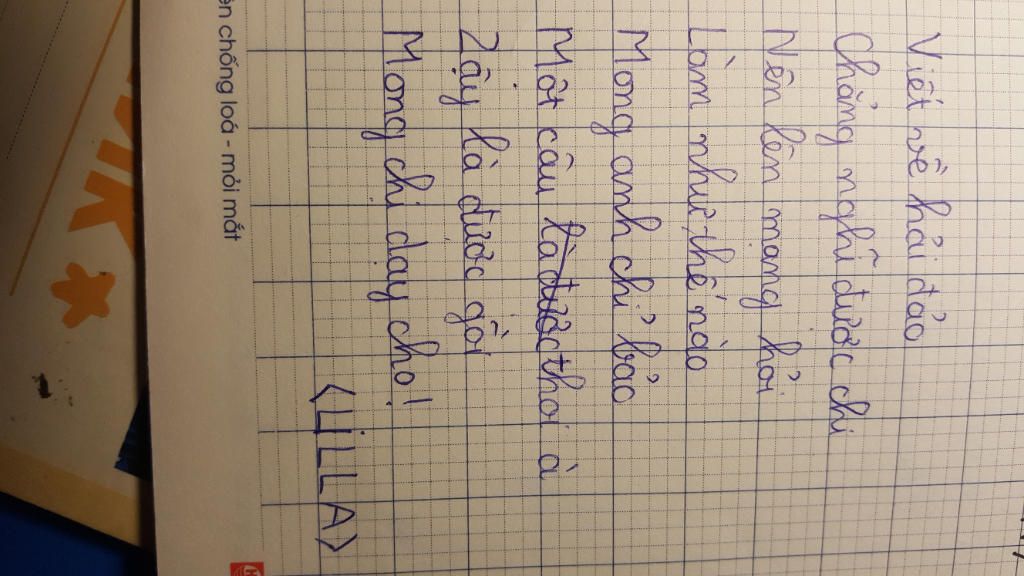 Viết về hải đảo
Chẳng nghĩ được chi
Nên lên mạng hỏi
Làm như thế nào
Mong anh chỉ bảo
Một câu là được thoi à
Zậy là được gồi
Mong chị dạy cho!
<LiLLA>
chống loá - mỏi mắt